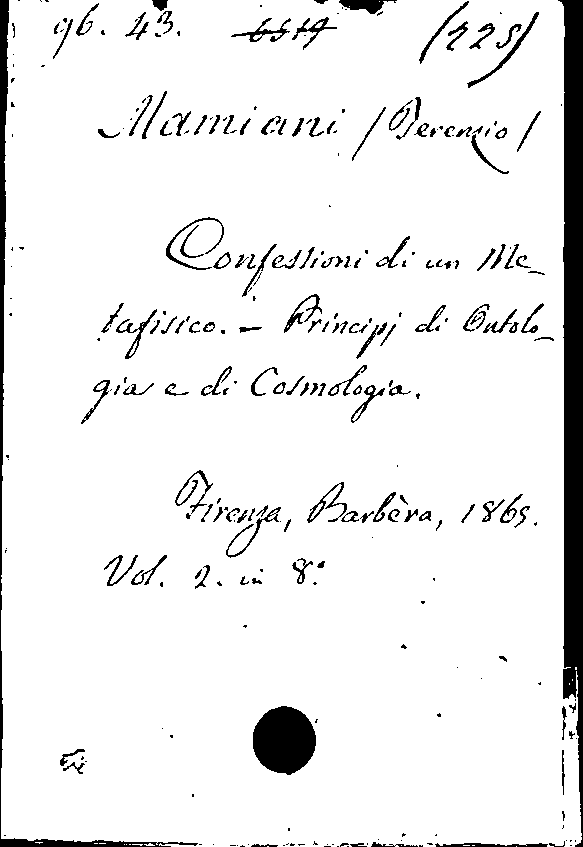 96. 43. 6519 (225)
Mamiani /Terenzio/
Confessioni di un Me-
tafisico. - Principj di Ontolo-
gia e di Cosmologia.
Firenza, Barbèra, 1865.
Vol. 2. in 8.°